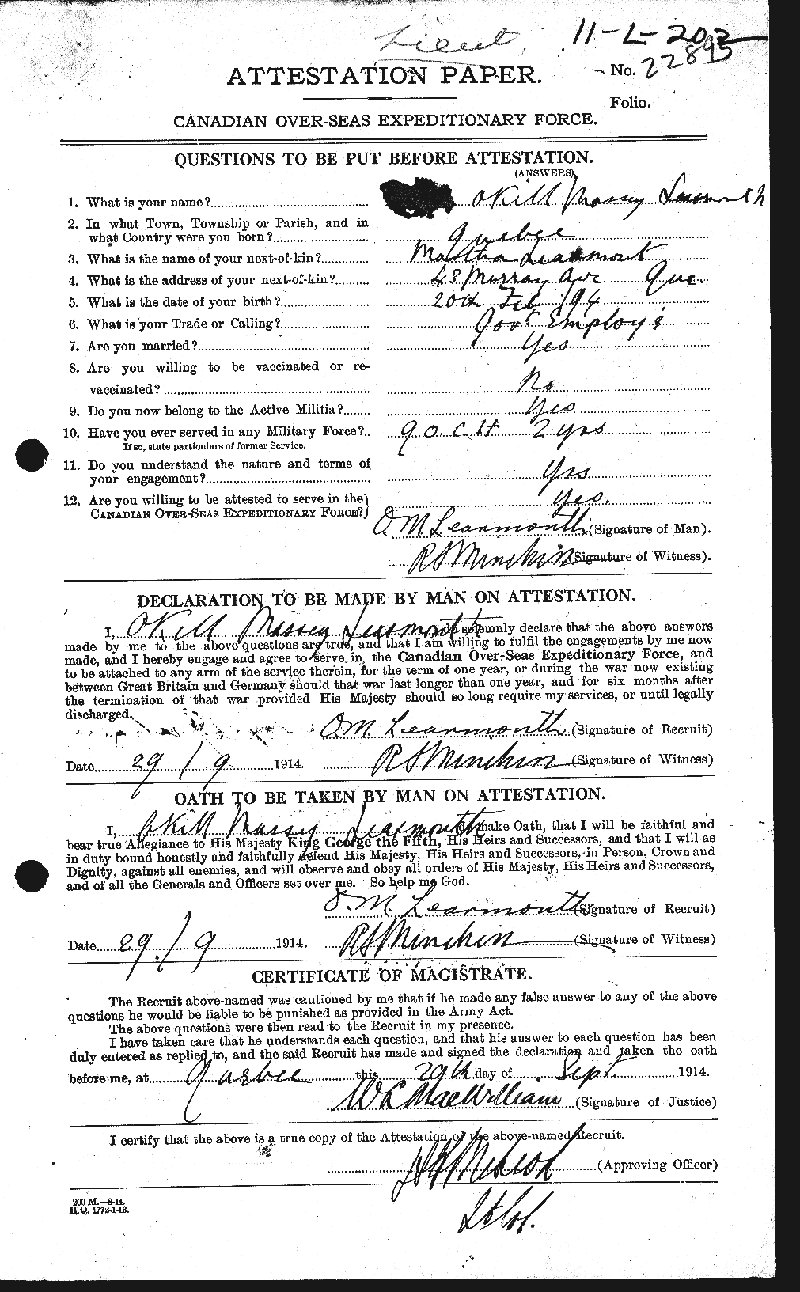 Lieut.
11-L-202
ATTESTATION PAPER.
No. 22895
Folio.
CANADIAN OVER-SEAS EXPEDITIONARY FORCE.
QUESTIONS TO BE PUT BEFORE ATTESTATION.
(ANSWERS)
1. What is your name? OKill Massey Learmonth
2. In what Town, Township or Parish, and in
what Country were you born? Quebec
3. What is the name of your next-of-kin? Martha Learmont
4. What is the address of your next-of-kin? 48 Murray Ave Que
5. What is the date of your birth? 20th Feb 194
6. What is your Trade or Calling? Govt Employé
7. Are you married? Yes
8. Are you willing to be vaccinated or re-
vaccinated? No
9. Do you now belong to the Active Militia? Yes
10. Have you ever served in any Military Force? Q O C H 2 yrs
If so, state particulars of former Service.
11. Do you understand the nature and terms of
your engagement? Yes
12. Are you willing to be attested to serve in the
CANADIAN OVER-SEAS EXPEDITIONARY FORCE? Yes.
O M Learmonth (Signature of Man).
R S Minchin (Signature of Witness).
DECLARATION TO BE MADE BY MAN ON ATTESTATION.
I, OKill Massey Learmonth solemnly declare that the above answers
made by me to the above questions are true, and that I am willing to fulfil the engagements by me now
made, and I hereby engage and agree to serve in the Canadian Over-Seas Expeditionary Force, and
to be attached to any arm of the service therein, for the term of one year, or during the war now existing
between Great Britain and Germany should that war last longer than one year, and for six months after
the termination of that war provided His Majesty should so long require my services, or until legally
discharged.
O M Learmonth (Signature of Recruit)
Date 29/9 1914. R S Minchin (Signature of Witness)
OATH TO BE TAKEN BY MAN ON ATTESTATION.
I, OKill Massey Learmonth make Oath, that I will be faithful and
bear true Allegiance to His Majesty King George the Fifth, His Heirs and Successors, and that I will as
in duty bound honestly and faithfully defend His Majesty, His Heirs and Successors, in Person, Crown and
Dignity, against all enemies, and will observe and obey all orders of His Majesty, His Heirs and Successors,
and of all the Generals and Officers set over me. So help me God.
O. M Learmonth (Signature of Recruit)
Date 29/9 1914. R S Minchin (Signature of Witness)
CERTIFICATE OF MAGISTRATE.
The Recruit above-named was cautioned by me that if he made any false answer to any of the above
questions he would be liable to be punished as provided in the Army Act.
The above questions were then read to the Recruit in my presence.
I have taken care that he understands each question, and that his answer to each question has been
duly entered as replied to, and the said Recruit has made and signed the declaration and taken the oath
before me, at Quebec this 29th day of Sept 1914.
MacWilliam (Signature of Justice)
I certify that the above is a true copy of the Attestation of the above-named Recruit.
(Approving Officer)
Lt Col.
200 M.—8-14.
H.Q. 1772-1-13.